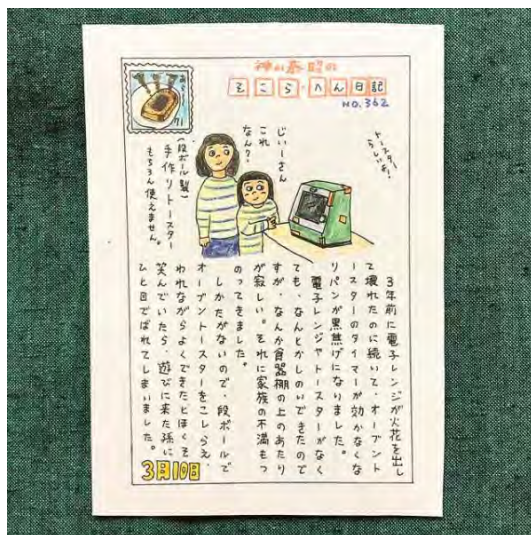 神山恭昭の
そこら・へん日記
NO.362
トースター
じいーさん
これ
なん?
(段ボール製)
手作りトースター
もちろん使えません。
3年前に電子レンジが火花を出し
て壊れたのに続いて、オーブント
ースターのタイマーが効かなくな
りパンが黒焦げになりました。
電子レンジやトースターがなく
ても、なんとかしのいできたので
すが、なんか食器棚の上のあたり
が寂しい。それに家族の不満もつ
のってきました。
しかたがないので、段ボールで
オーブントースターをこしらえ、
われながらよくできたとほくそ
笑んでいたら、遊びに来た孫に
ひと目でばれてしまいました。
3月10日